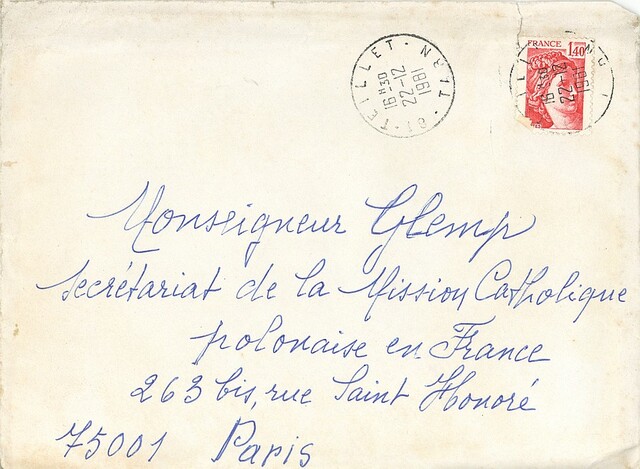 TEILLET · N · 81 · TARN
16H30
22-12
1981
FRANCE 1,40
16H30
22-12
1981
Monseigneur Glemp
secrétariat de la Mission Catholique
polonaise en France
263 bis, rue Saint Honoré
75001 Paris